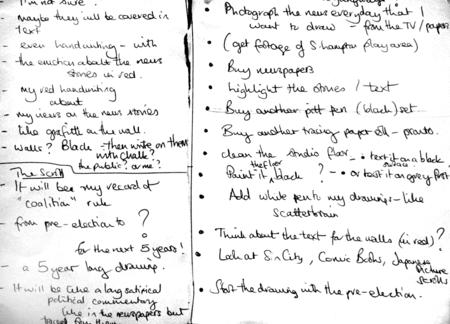 I'm not sure.
- maybe they will be covered in
text
- even handwriting - with
- the emotion about the news
stories in red.
- my red handwriting
about
- my views on the news stories
- like graffiti on the wall.
- walls? Black - then write on them
with chalk?
the public? or me?
The Scroll
- It will be my record of
"coalition" rule
- from pre-election to ?
for the next 5 years!
- a 5 year long drawing.
- It will be like a long satirical
political commentary
like in the newspapers but
• Photograph the news everyday that I
want to draw - from the TV/papers
• (get footage of S.hampton play area)
• Buy newspapers
• highlight the stories / text
• Buy another pitt pen (black) set
• Buy another tracing paper roll - pronto.
• clean the studio floor • test it on a black
surface
• Paint it black ? - • or test it on grey first
the floor
• Add white pen to my drawings - like
Scatterbrain
• Think about the text for the walls (in red)?
• Look at Sin City, Comic Books, Japanese
picture
scrolls
• Start the drawing with the pre-election.